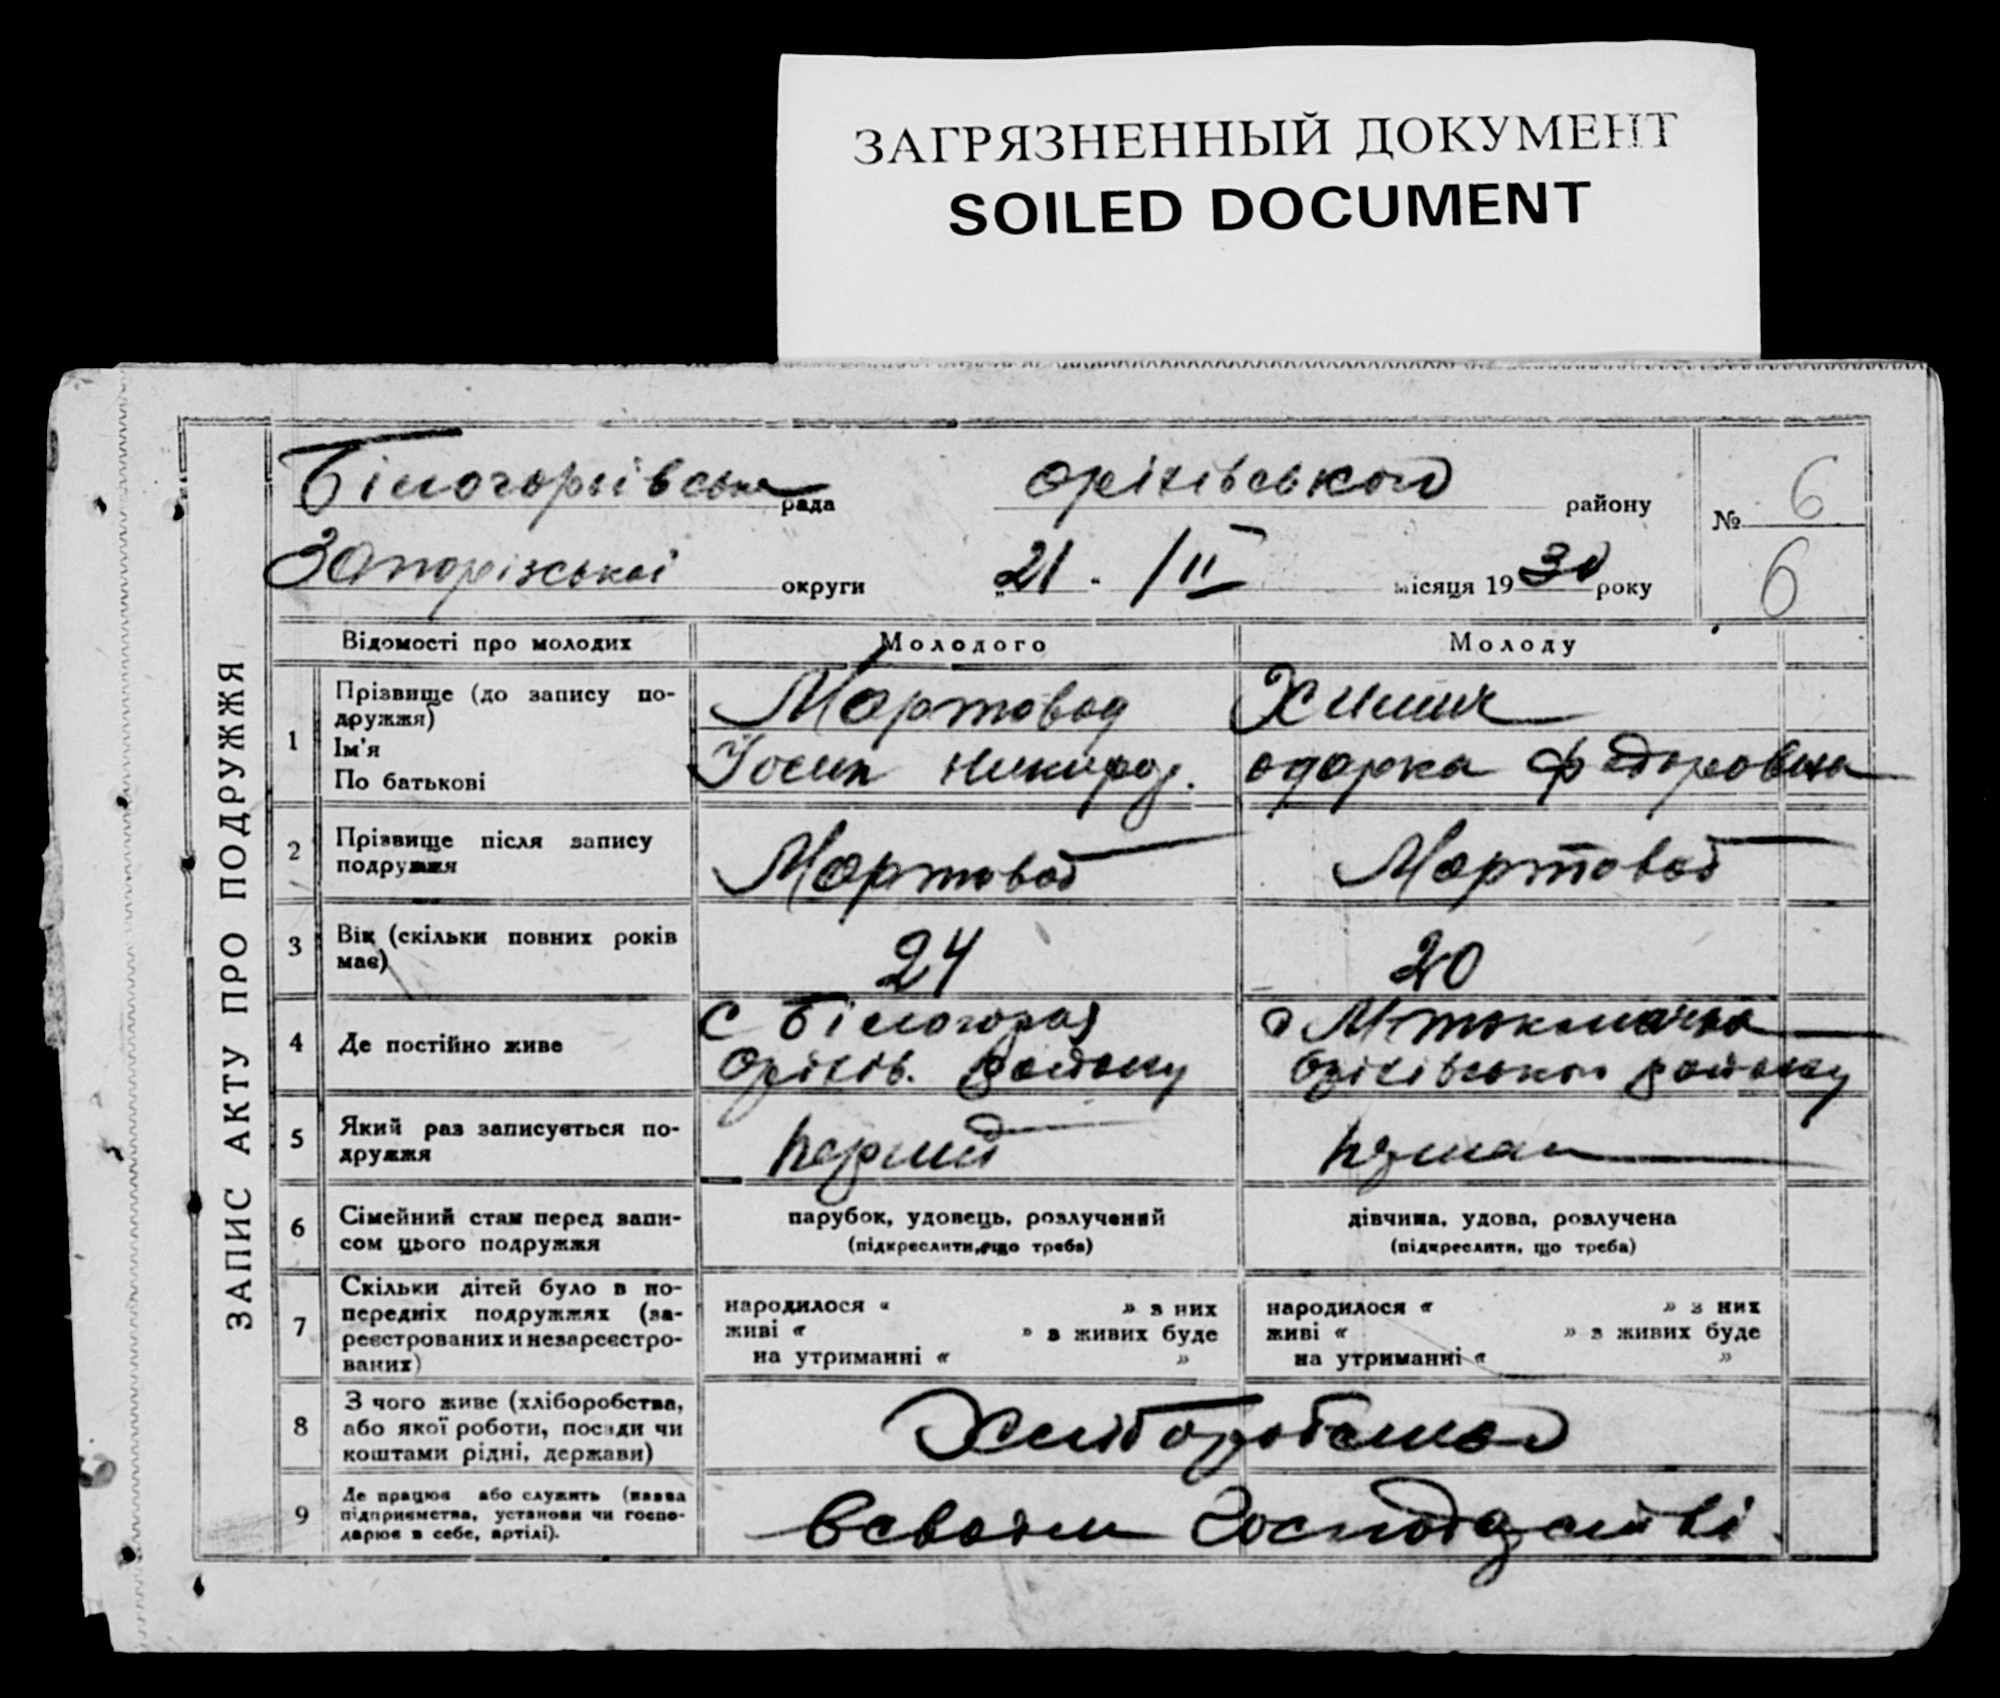 ЗАГРЯЗНЕННЫЙ ДОКУМЕНТ
SOILED DOCUMENT
ЗАПИС АКТУ ПРО ПОДРУЖЖЯ
Білогорівська рада Оріхівського району № 6
Запорізької округи „21 - /II місяця 1930 року 6
Відомості про молодих Молодого Молоду
1 Прізвище (до запису по-
дружжя)
Ім'я
По батькові
Мартовод
Йосип Никифор.
одарка Федоровна
2 Прізвище після запису
подружжя
Мартовод Мартовод
3 Вік (скільки повних років
має)
24 20
4 Де постійно живе
с Білогорья
Оріхів. району
с М-токмачка
Оріхівського району
5 Який раз записується по-
дружжя
перший перший
6 Сімейний стан перед запи-
сом цього подружжя
парубок, удовець, розлучений
(підкреслити, що треба)
дівчина, удова, розлучена
(підкреслити, що треба)
7 Скільки дітей було в по-
передніх подружжях (за-
реєстрованих и незареєстро-
ваних)
народилося « » з них
живі « » з живих буде
на утриманні « »
народилося « » з них
живі « » з живих буде
на утриманні « »
8 З чого живе (хліборобства,
або якої роботи, посади чи
коштами рідні, держави)
9 Де працює або служить (назва
підприємства, установи чи госпо-
дарює в себе, артілі).
Всвоем Господарстві.